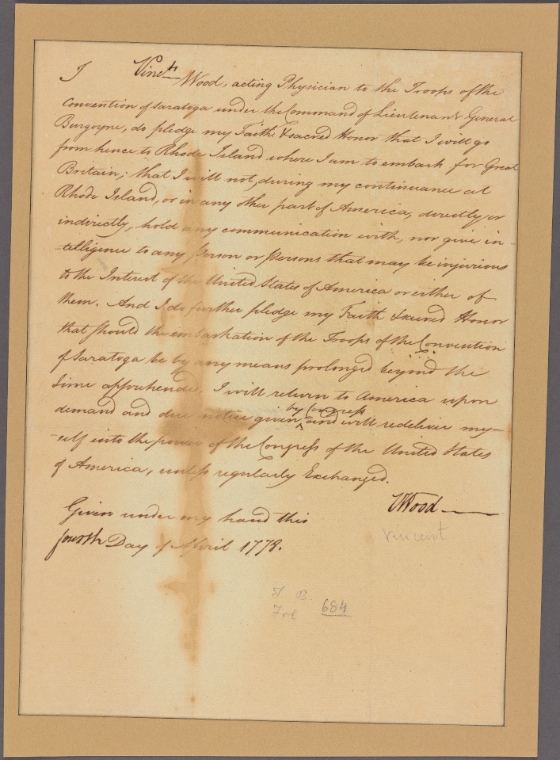 I Vinct. Wood, acting Physician to the Troops of the
Convention of Saratoga under the Command of Lieutenant General
Burgoyne, do pledge my Faith & sacred Honor that I will go
from hence to Rhode Island where I am to embark for Great
Britain; that I will not, during my continuance at
Rhode Island, or in any other part of America, directly or
indirectly, hold any communication with, nor give in-
telligence to any Person or Persons that may be injurious
to the Interest of the United States of America or either of
them. And I do further pledge my Faith & sacred Honor
that should the embarkation of the Troops of the Convention
of Saratoga be by any means prolonged beyond the
time apprehended, I will return to America upon
demand and due notice given by Congress and will redeliver my-
self into the power of the Congress of the United States
of America, unless regularly Exchanged.
VWood
Given under my hand this
fourth Day of April 1778.
Vincent
684